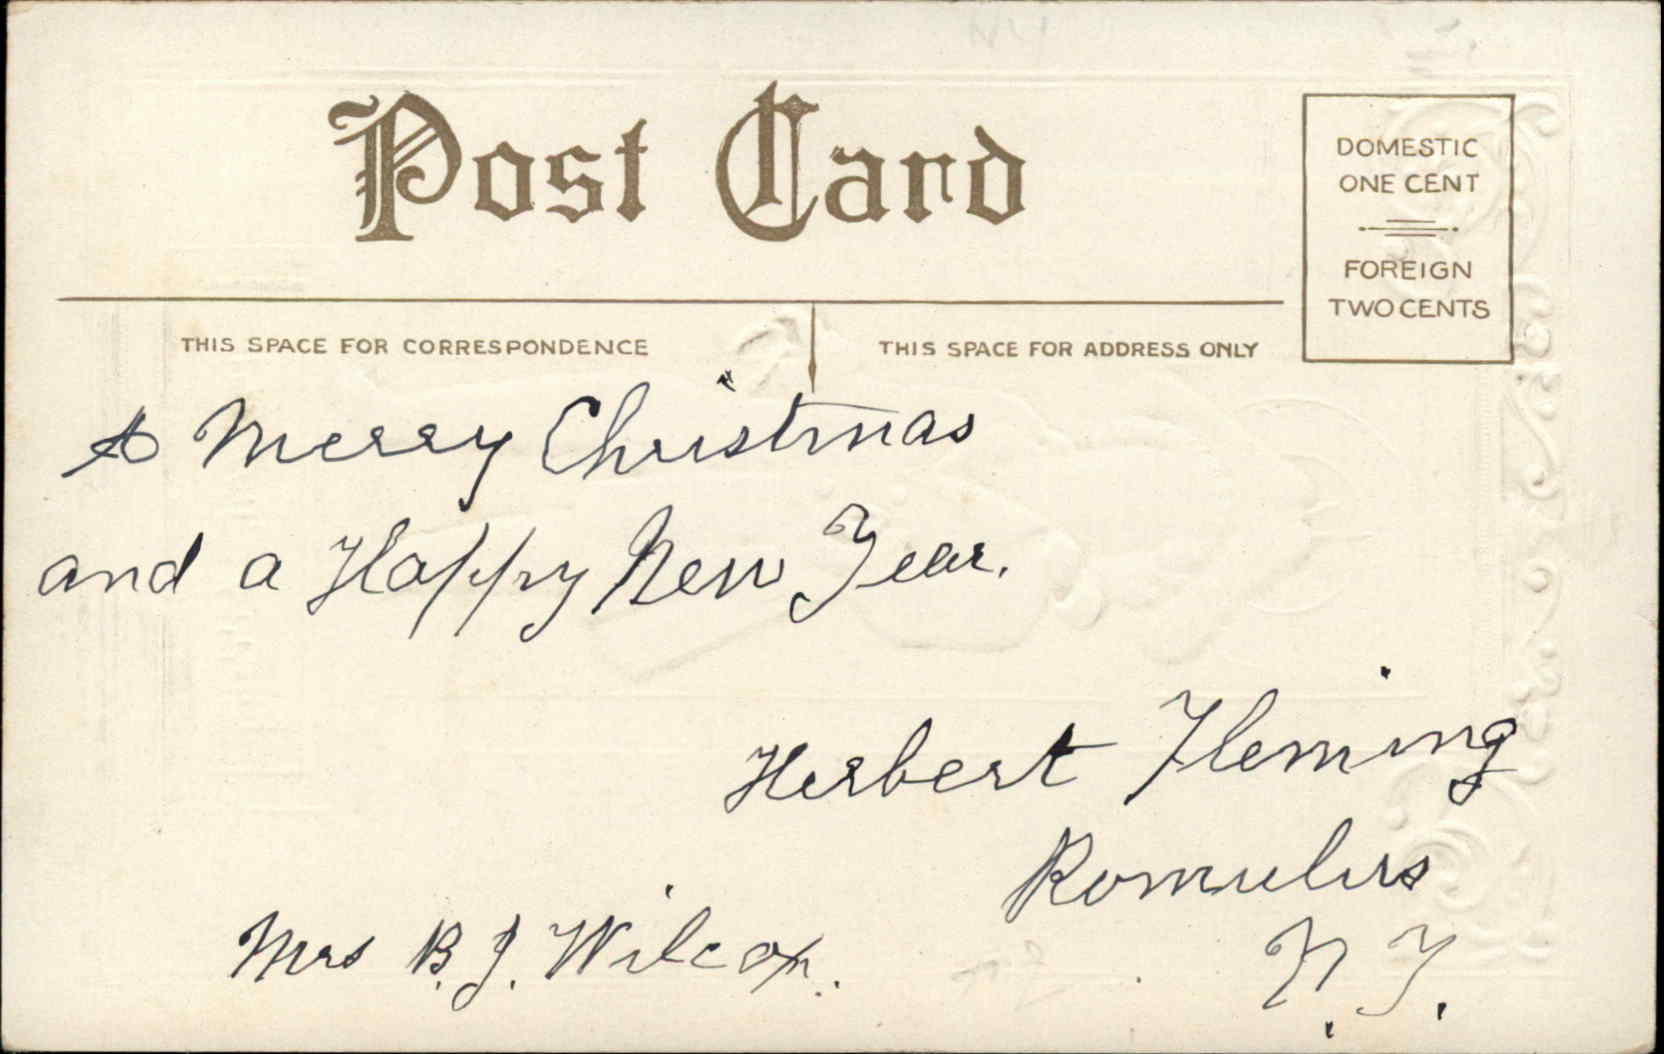 Post Card
DOMESTIC
ONE CENT
FOREIGN
TWO CENTS
THIS SPACE FOR CORRESPONDENCE
THIS SPACE FOR ADDRESS ONLY
A Merry Christmas
and a Happy New Year.
Herbert Fleming
Romulus
N.Y.
Mrs B.J. Wilcox.